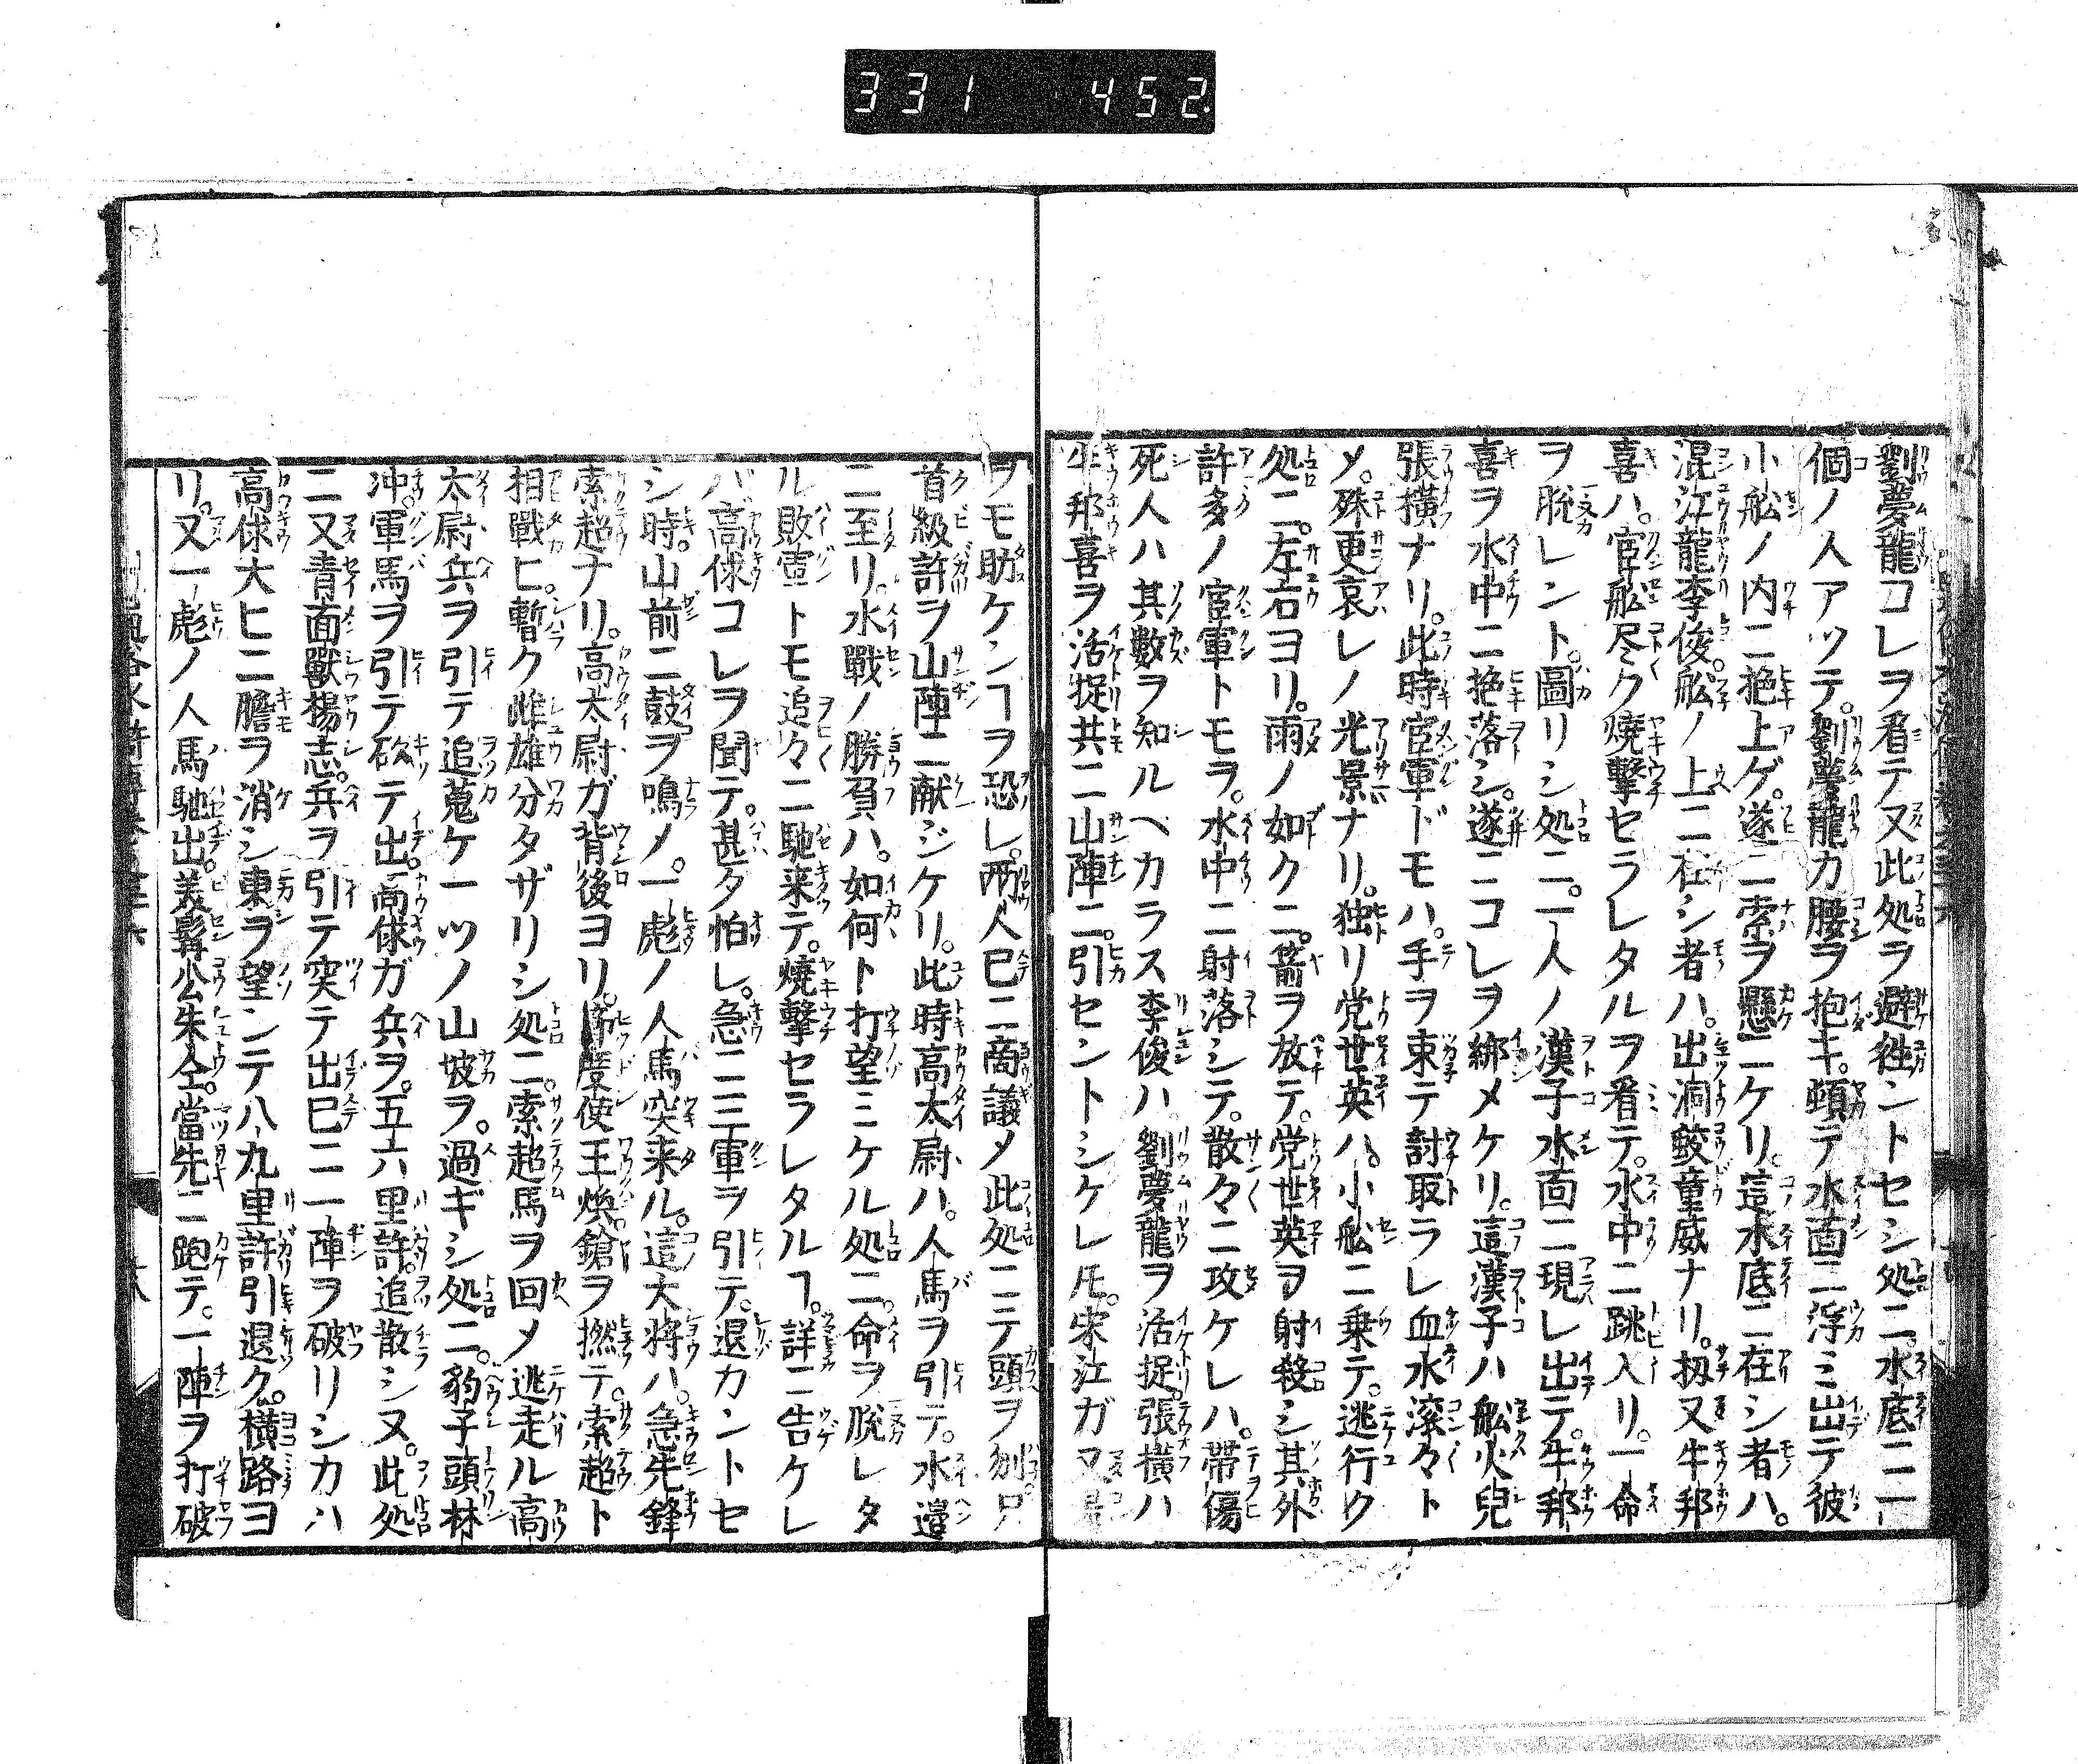 331 452
劉夢龍コレヲ看テ又此処ヲ避徃ントセシ処ニ。水底ニ一
個ノ人アツテ。劉夢龍カ腰ヲ抱キ。頓テ水面ニ浮ミ出テ彼
小舩ノ内ニ拖上ゲ。遂ニ索ヲ懸ニケリ。這水底ニ在シ者ハ。
混江龍李俊。舩ノ上ニ在シ者ハ。出洞鮫童威ナリ。扨又牛邦
喜ハ。官舩尽ク燒擊セラレタルヲ看テ。水中ニ跳入リ。一命
ヲ脱レント。圖リシ処ニ。一人ノ漢子水面ニ現レ出テ。牛邦
喜ヲ水中ニ拖落シ。遂ニコレヲ綁メケリ。這漢子ハ舩火兒
張横ナリ。此時官軍ドモハ。手ヲ束テ討取ラレ血水滚々ト
メ。殊更哀レノ光景ナリ。独リ党世英ハ。小舩ニ乗テ。逃行ク
処ニ。左右ヨリ。雨ノ如クニ。箭ヲ放テ。党世英ヲ射殺シ其外
許多ノ官軍トモヲ。水中ニ射落シテ。散々ニ攻ケレハ。帶傷
死人ハ其數ヲ知ルヘカラス李俊ハ劉夢龍ヲ活捉。張横ハ
牛邦喜ヲ活捉共ニ山陣ニ。引セントシケレ𪜈。宋江ガ又
ヲモ助ケンヿヲ恐レ。両人已ニ商議メ此処ニテ頭ヲ刎只
首級許ヲ山陣ニ献ジケリ。此時高太尉ハ。人馬ヲ引テ。水邉
ニ至リ。水戰ノ勝負ハ。如何ト打望ミケル処ニ。命ヲ脱レタ
ル敗軍トモ追々ニ馳来テ。燒擊セラレタルヿ。詳ニ告ケレ
バ高俅コレヲ聞テ。甚タ怕レ。急ニ三軍ヲ引テ。退カントセ
シ時。山前ニ鼓ヲ鳴メ。一彪ノ人馬突来ル。這大将ハ。急先鋒
索超ナリ。高太尉ガ背後ヨリ。節度使王煥。鎗ヲ撚テ。索超ト
相戰ヒ。暫ク雌雄分タザリシ処ニ。索超馬ヲ回メ逃走ル高
太尉兵ヲ引テ追蒐ケ一ツノ山坡ヲ。過ギシ処ニ。豹子頭林
冲。軍馬ヲ引テ砍テ出。高俅ガ兵ヲ。五六里許。追散シヌ。此処
ニ又青面獸楊志。兵ヲ引テ突テ出已ニ一陣ヲ破リシカハ
高俅大ヒニ膽ヲ消シ東ヲ望ンテ八九里許引退ク。横路ヨ
リ。又一彪ノ人馬馳出。美髯公朱仝。當先ニ跑テ。一陣ヲ打破